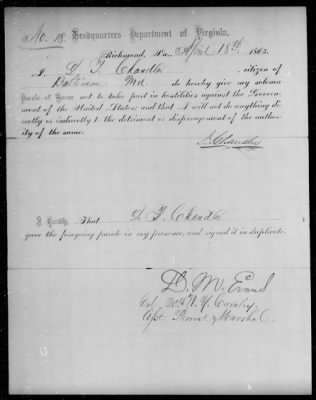 No. 18. Headquarters Department of Virginia,
Richmond, Va., April 18th 1865.
I, D. T. Chandler, citizen of
Baltimore Md do hereby give my solemn
Parole of Honor not to take part in hostilities against the Govern-
ment of the United States; and that I will not do anything di-
rectly or indirectly to the detriment or disparagement of the author-
ity of the same.
D. Chandler
I Certify, That D. T. Chandler
gave the foregoing parole in my presence, and signed it in duplicate.
D. M. Evans
Col. 20th N. Y. Cavalry,
Asst Provost Marshal.